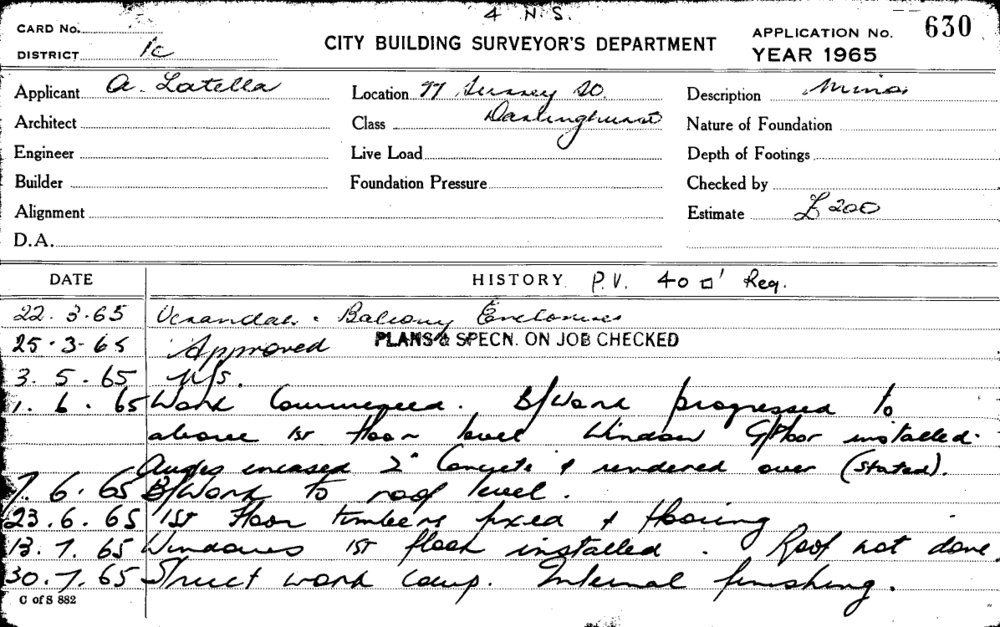 4 N.S.
CARD No.
CITY BUILDING SURVEYOR'S DEPARTMENT
APPLICATION No. 630
DISTRICT 1c
YEAR 1965
Applicant A. Latella
Location 77 Surrey St.
Description Minor
Architect
Class Darlinghurst
Nature of Foundation
Engineer
Live Load
Depth of Footings
Builder
Foundation Pressure
Checked by
Alignment
Estimate £200
D.A.
DATE
HISTORY P.V. 40 □' Req.
22.3.65 Verandah & Balcony Enclosures
25-3-65 Approved PLANS & SPECN. ON JOB CHECKED
3.5.65 N/S.
1.6.65 Work Commenced. B/Work progressed to
above 1st floor level Window G/floor installed.
Angles encased 2" Concrete & rendered over (stated).
7.6.65 B/Work to roof level.
23.6.65 1st Floor timbers fixed & flooring
13.7.65 Windows 1st floor installed. Roof not done
30.7.65 Struct work comp. Internal finishing.
C of S 882